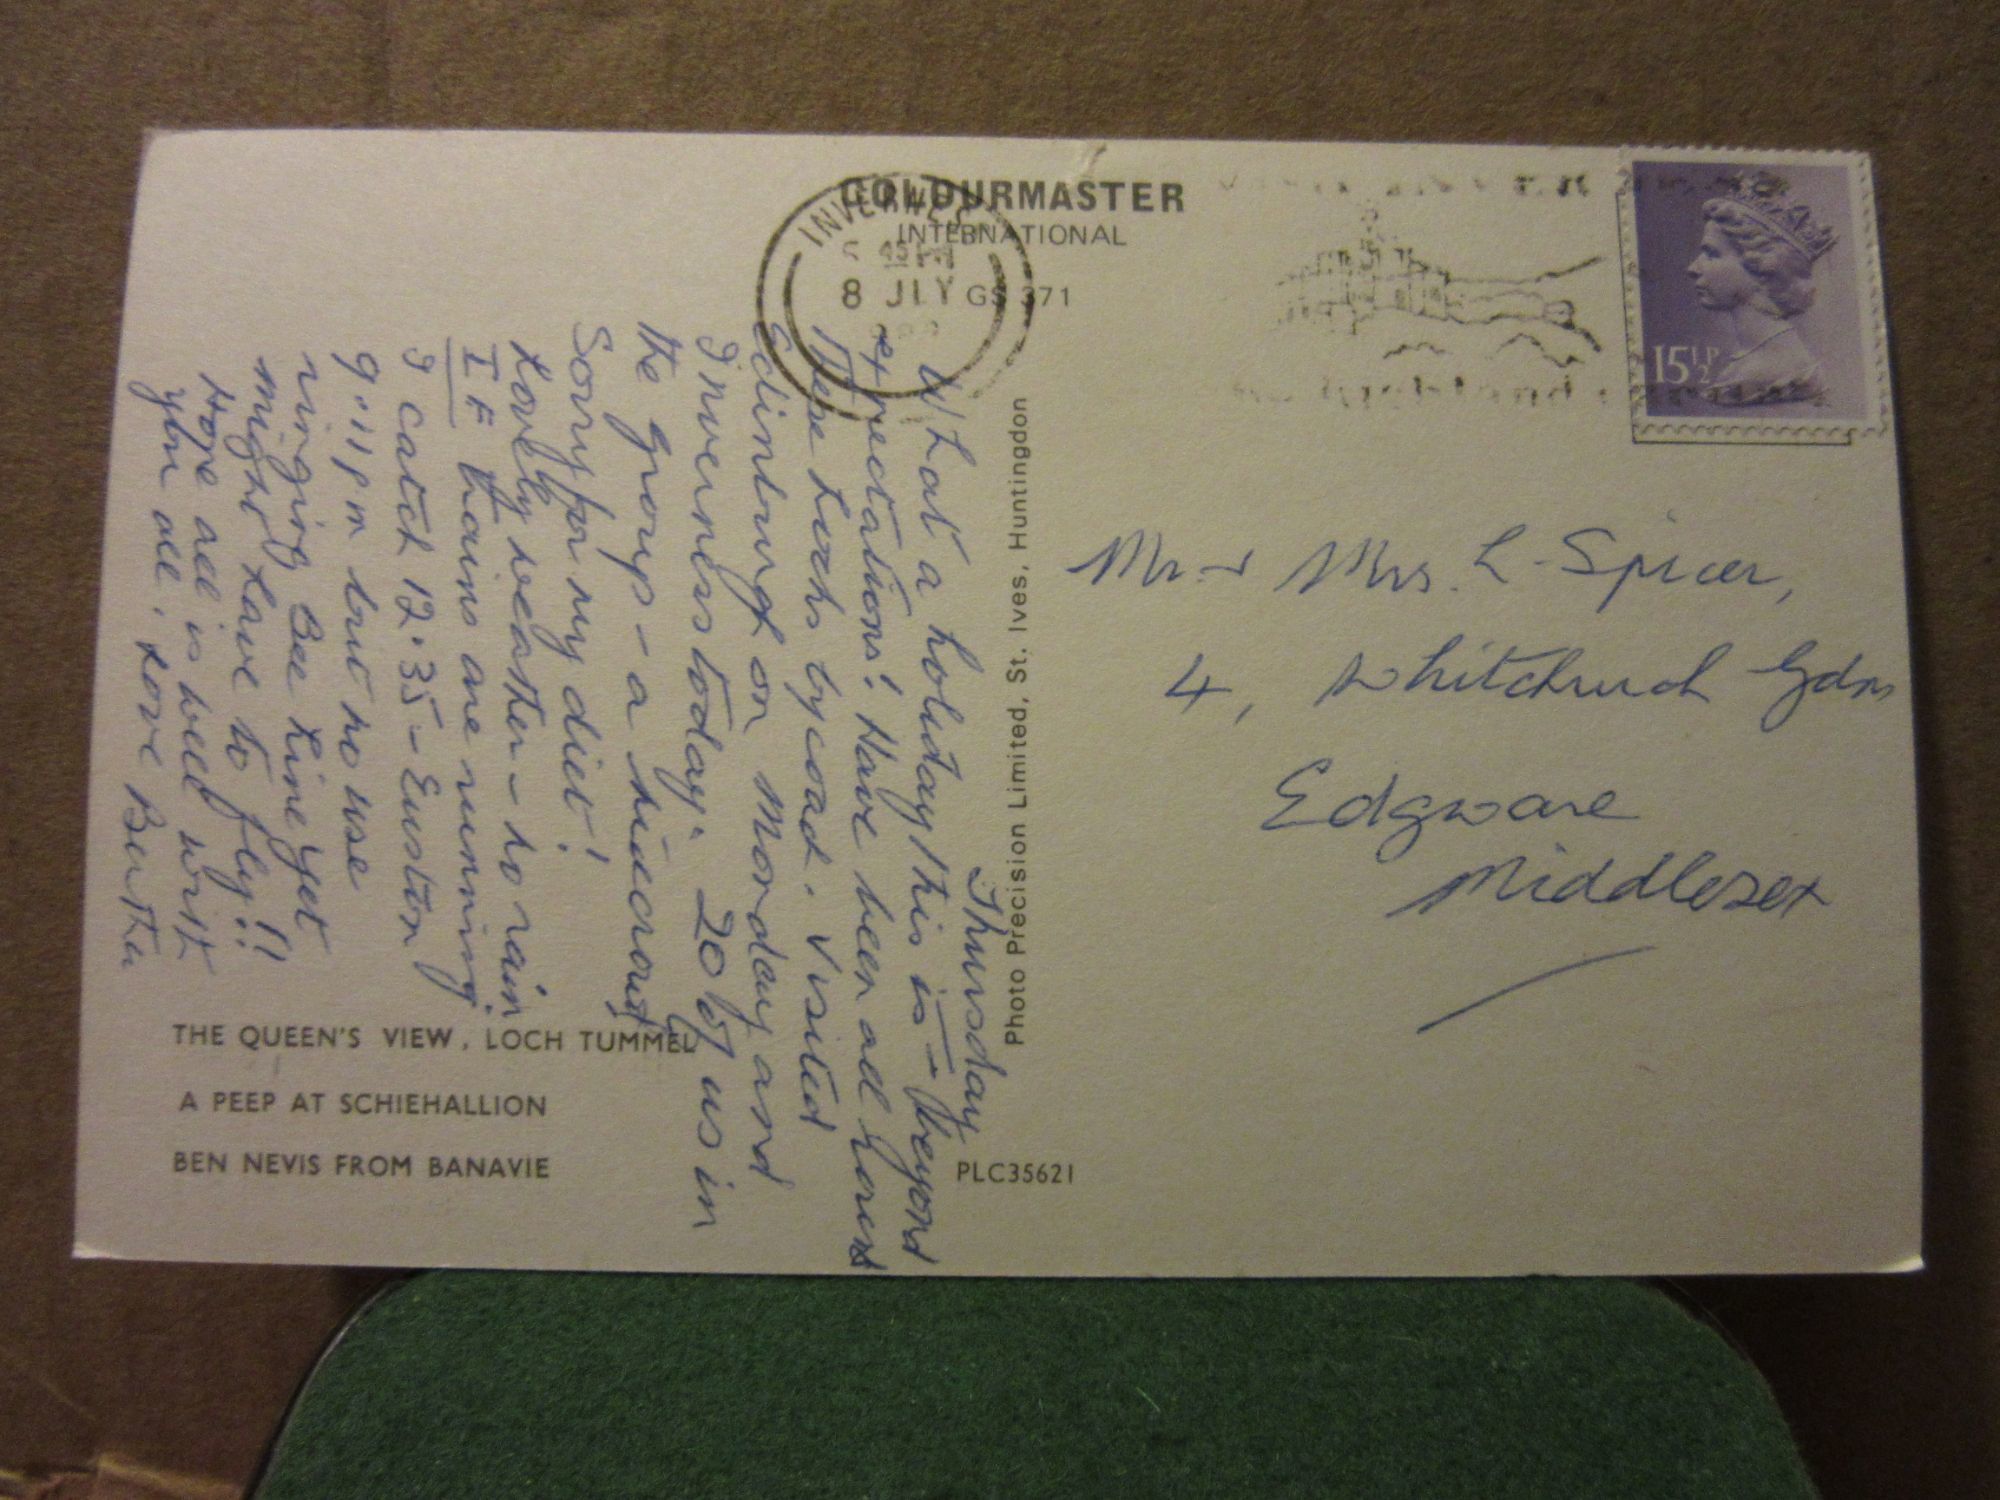 COLOURMASTER
INTERNATIONAL
INVERNESS
45 PM
8 JLY
GS 371
15½P
Thursday
What a holiday this is - beyond
expectations! Have been all round
these Lochs by coach. Visited
Edinburgh on Monday and
Inverness today. 20 of us in
the group - a nice crowd
Sorry for my diet!
Lovely weather - no rain
IF trains are running
I catch 12.35 - Euston
9.11pm but no use
ringing Bee Line yet
might have to fly!!
Hope all is well with
you all. Love Bertha
Photo Precision Limited, St. Ives, Huntingdon
Mr. & Mrs. L. Spicer,
4, Whitchurch Gdns
Edgware
Middlesex
THE QUEEN'S VIEW, LOCH TUMMEL
A PEEP AT SCHIEHALLION
BEN NEVIS FROM BANAVIE
PLC35621